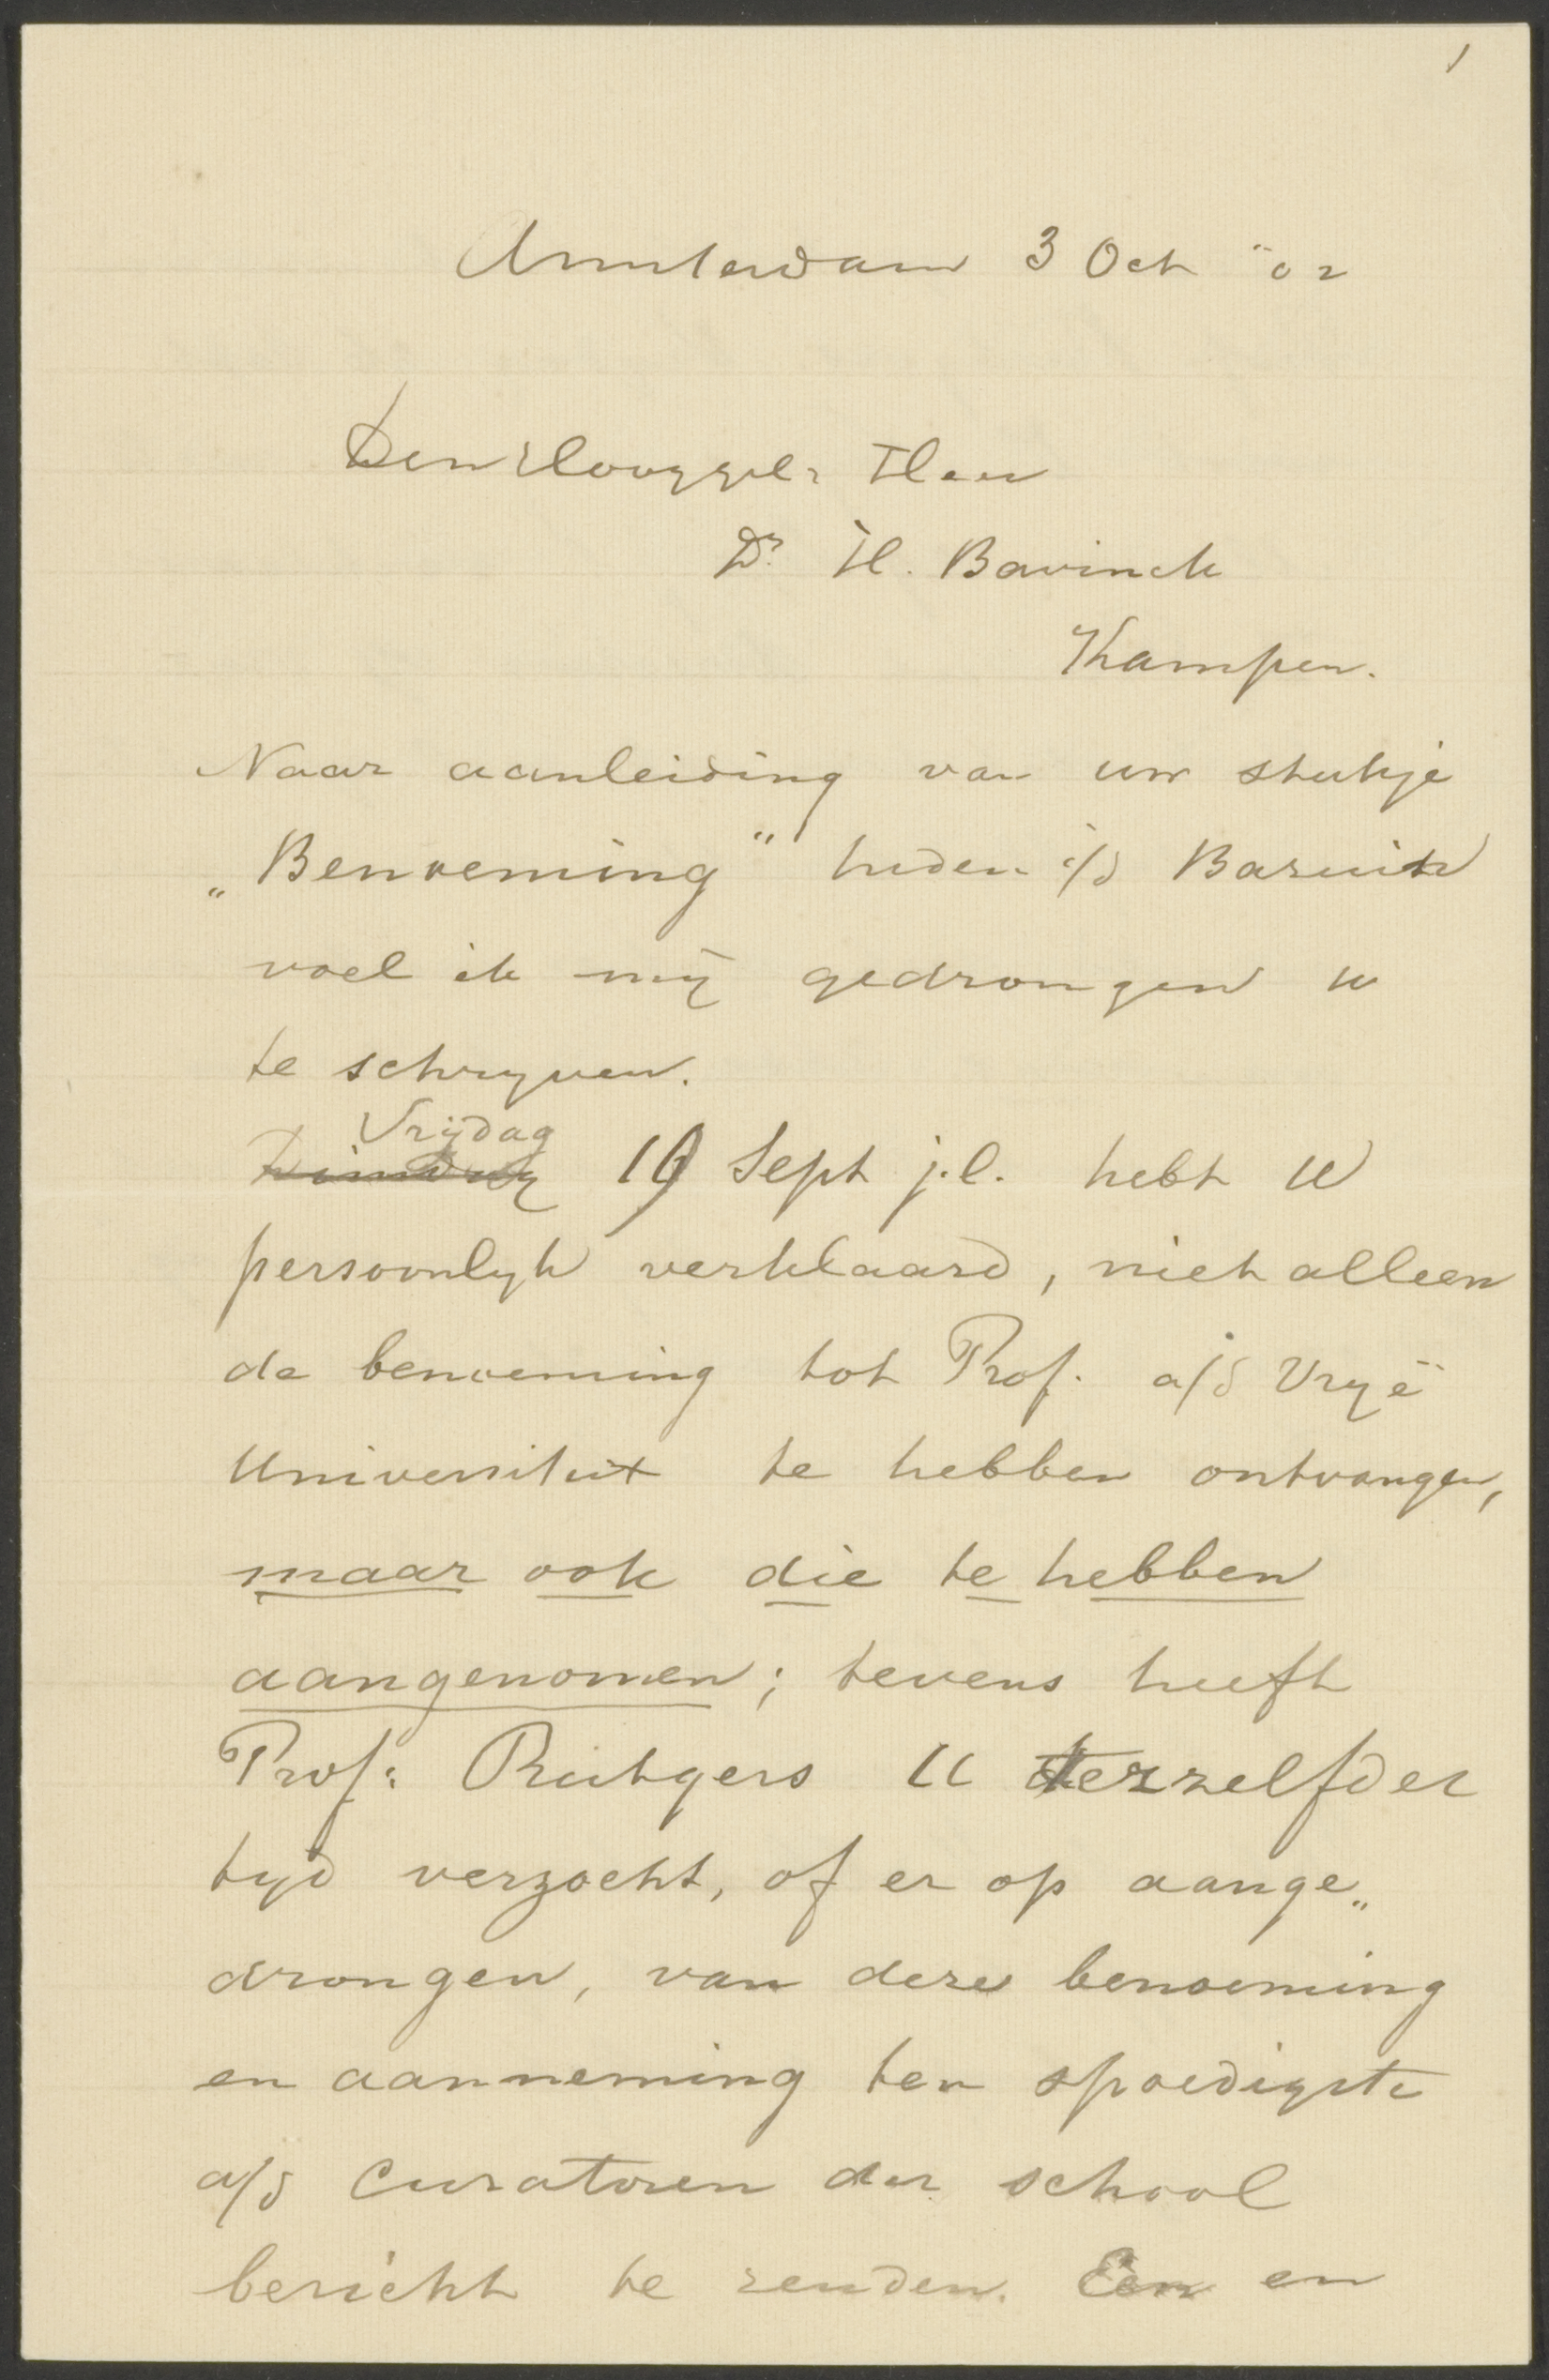 1
Amsterdam 3 Oct "02
Den Hooggel. Heer
Dr H. Bavinck
Kampen.
Naar aanleiding van uw stukje
„Benoeming" heden i/d Bazuin
voel ik mij gedrongen u
te schryven.
Vrijdag
19 Sept j.l. hebt U
persoonlyk verklaard, niet alleen
de benoeming tot Prof. a/d Vryë
Universiteit te hebben ontvangen,
maar ook die te hebben
aangenomen; tevens heeft
Prof: Rutgers U terzelfder
tyd verzocht, of er op aange„
drongen, van deze benoeming
en aanneming ten spoedigste
a/d Curatoren der school
bericht te zenden. Een en